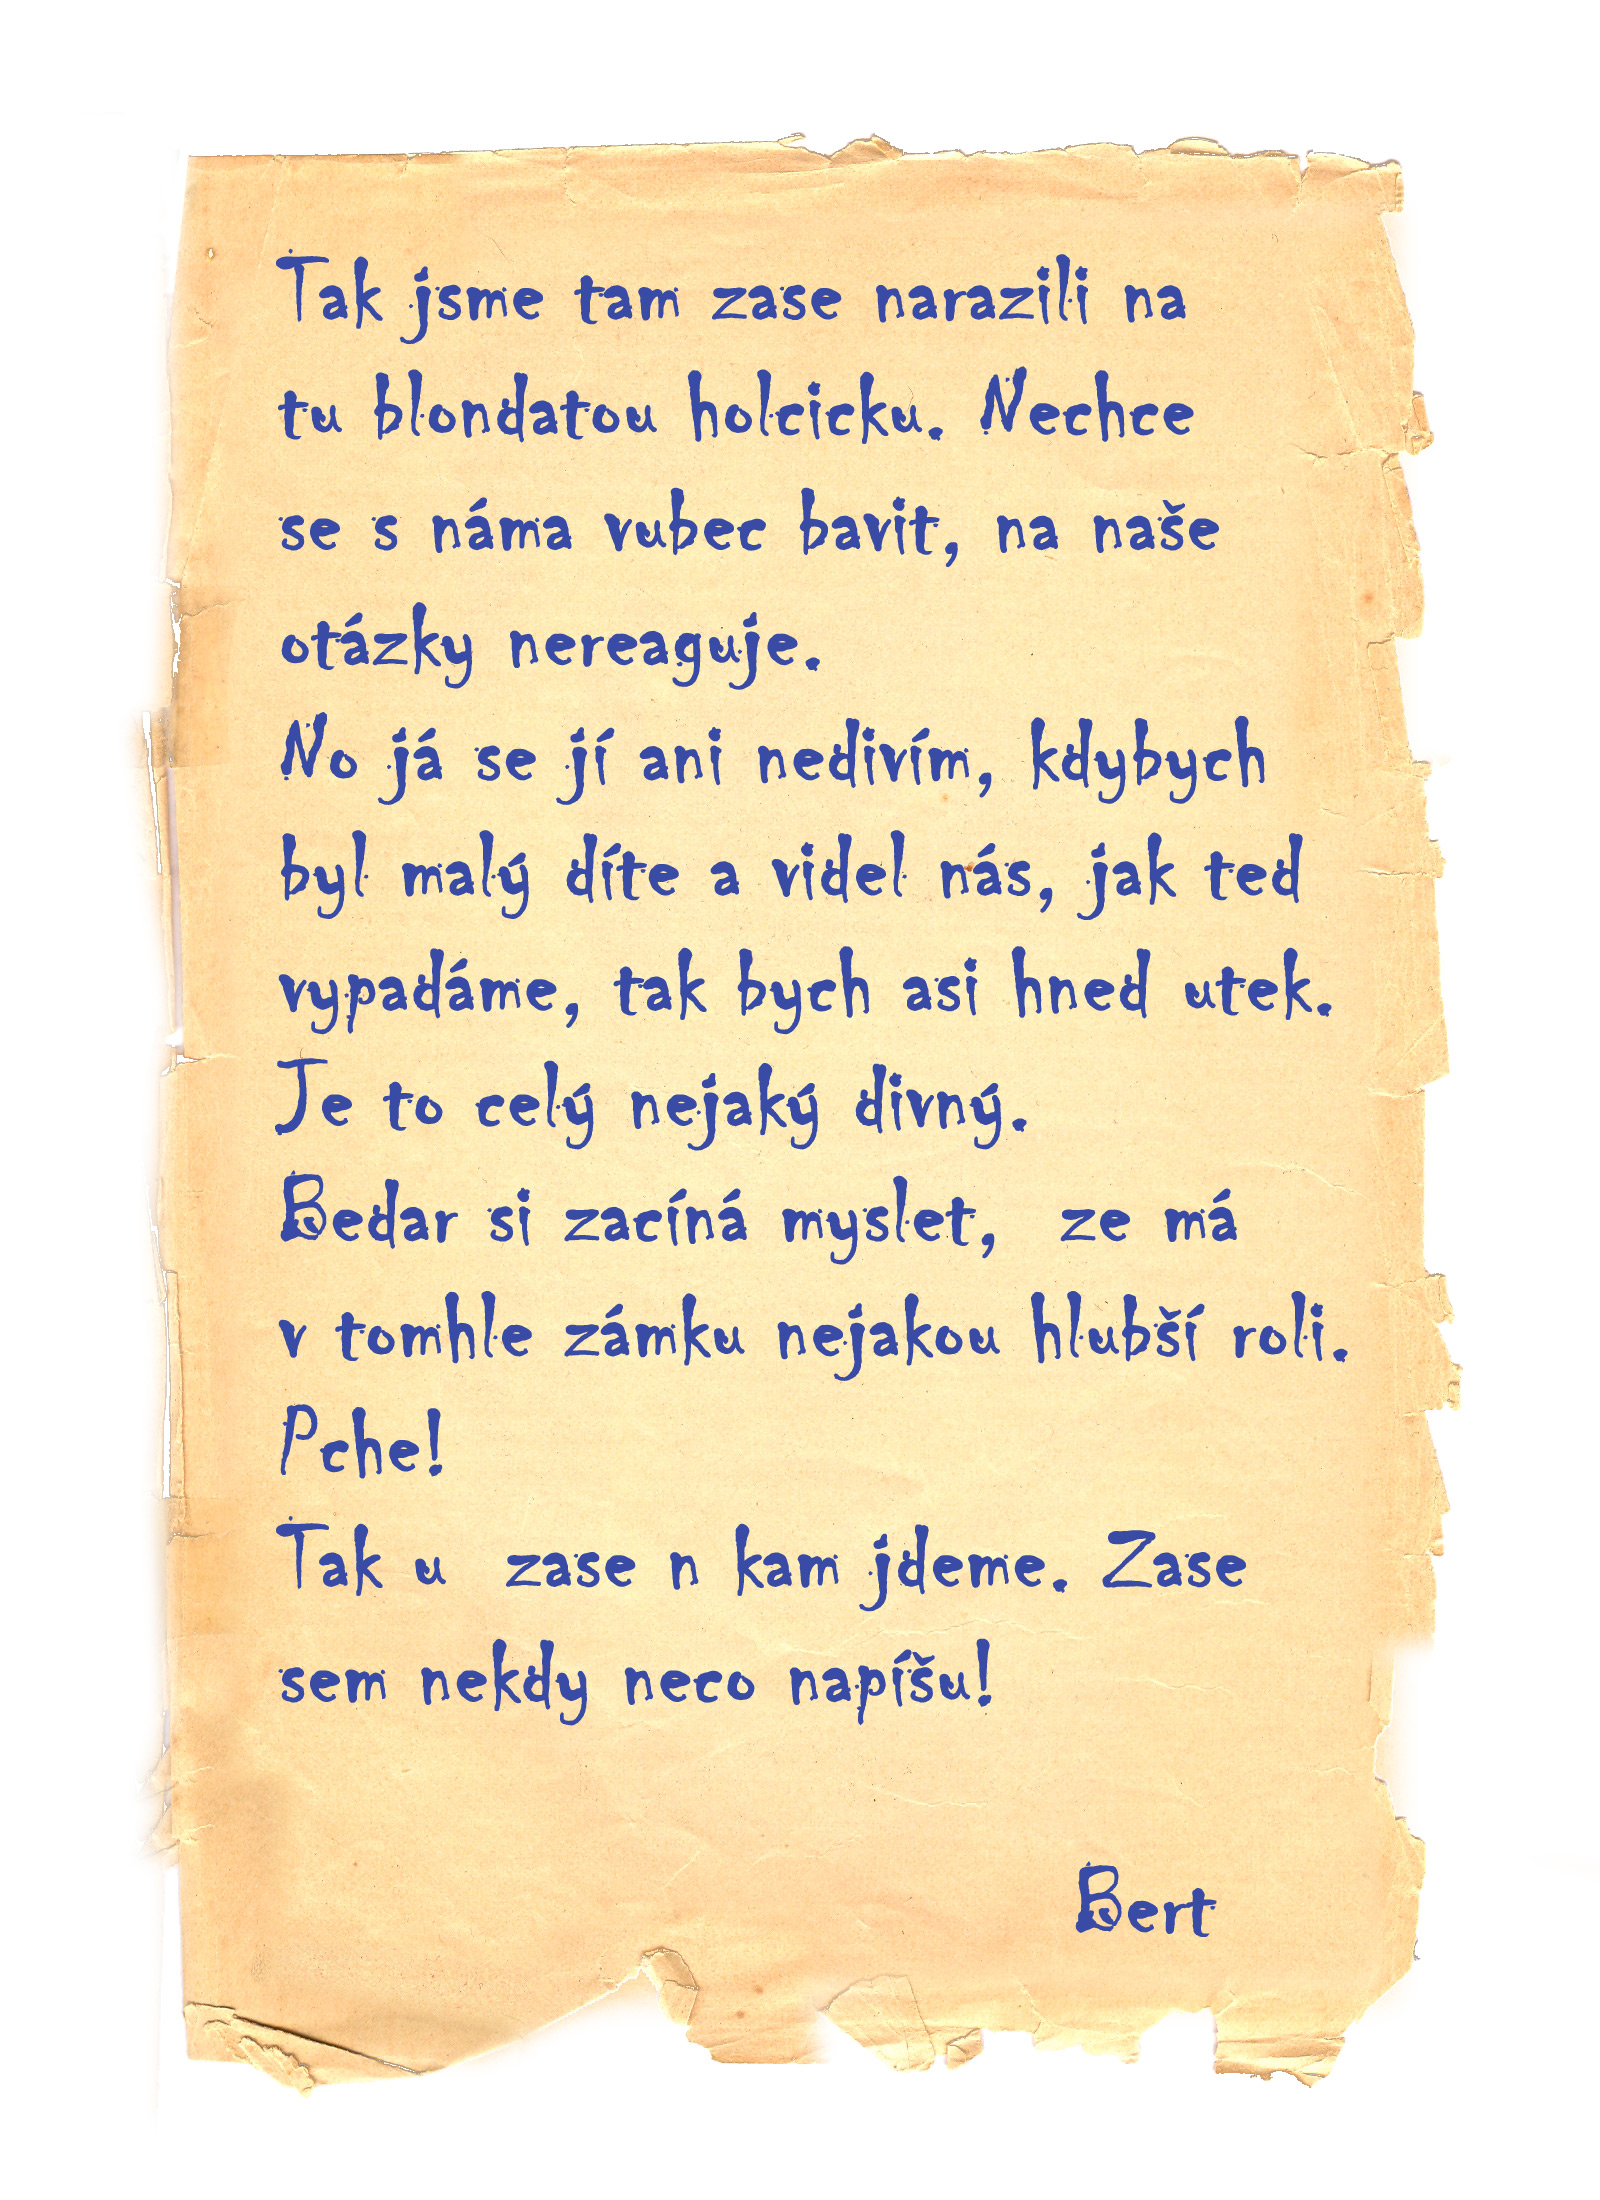 Tak jsme tam zase narazili na
tu blondatou holcicku. Nechce
se s náma vubec bavit, na naše
otázky nereaguje.
No já se jí ani nedivím, kdybych
byl malý díte a videl nás, jak ted
vypadáme, tak bych asi hned utek.
Je to celý nejaký divný.
Bedar si zacíná myslet, ze má
v tomhle zámku nejakou hlubší roli.
Pche!
Tak u zase n kam jdeme. Zase
sem nekdy neco napíšu!
Bert